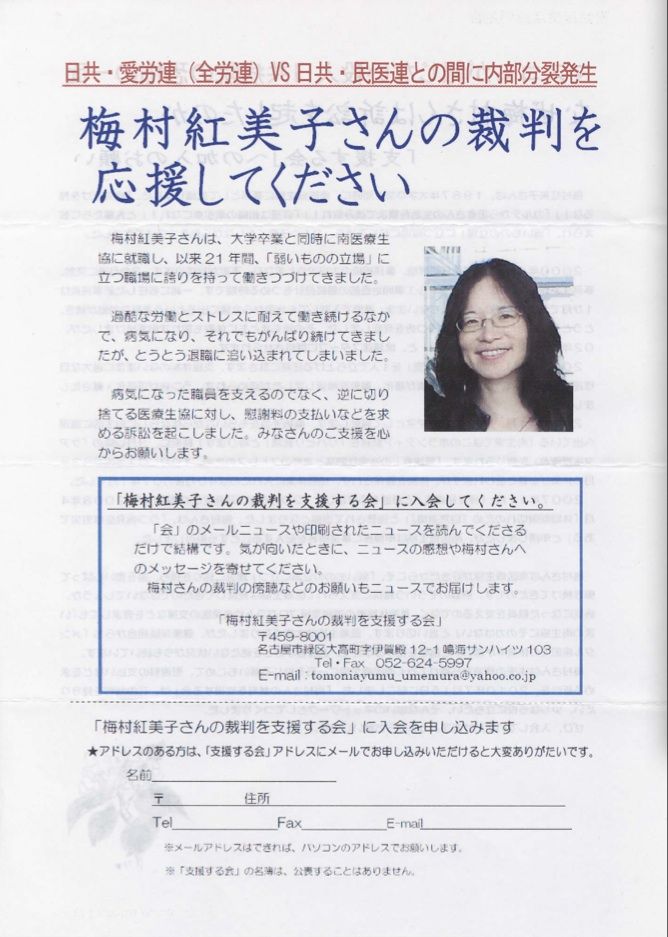 日共・愛労連（全労連）VS日共・民医連との間に内部分裂発生
梅村紅美子さんの裁判を
応援してください
梅村紅美子さんは、大学卒業と同時に南医療生
協に就職し、以来21年間、「弱いものの立場」に
立つ職場に誇りを持って働きつづけてきました。
過酷な労働とストレスに耐えて働き続けるなか
で、病気になり、それでもがんばり続けてきまし
たが、とうとう退職に追い込まれてしまいました。
病気になった職員を支えるのでなく、逆に切り
捨てる医療生協に対し、慰謝料の支払いなどを求
める訴訟を起こしました。みなさんのご支援を心
からお願いします。
「梅村紅美子さんの裁判を支援する会」に入会してください。
「会」のメールニュースや印刷されたニュースを読んでくださる
だけで結構です。気が向いたときに、ニュースの感想や梅村さんへ
のメッセージを寄せてください。
梅村さんの裁判の傍聴などのお願いもニュースでお届けします。
「梅村紅美子さんの裁判を支援する会」
〒459-8001
名古屋市緑区大高町字伊賀殿12-1鳴海サンハイツ103
Tel・Fax 052-624-5997
E-mail：tomoniayumu_umemura@yahoo.co.jp
「梅村紅美子さんの裁判を支援する会」に入会を申し込みます
★アドレスのある方は、「支援する会」アドレスにメールでお申し込みいただけると大変ありがたいです。
名前
〒 住所
Tel Fax E-mail
※メールアドレスはできれば、パソコンのアドレスでお願いします。
※「支援する会」の名簿は、公表することはありません。